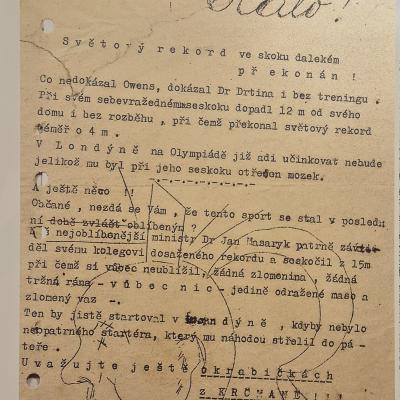 Světový rekord ve skoku dalekém
překonán !
Co nedokázal Owens, dokázal Dr Drtina i bez treningu .
Při svém sebevražednémseskoku dopadl 12 m od svého
domu i bez rozběhu , při čemž překonal světový rekord
téměř o 4 m .
V Londýně na Olympiádě již adi učinkovat nebude
jelikož mu byl při jeho seskoku otřesen mozek.
A ještě něco !!
Občané , nezdá se Vám , že tento sport se stal v posledn
ní době zvlášť oblíbeným ?
nejoblíbenější ministr Dr Jan Masaryk patrně záv
děl svému kolegovi dosaženého rekordu a seskočil z 15m
při čemž si vůbec neublížil, žádná zlomenina , žádná
tržná rána - vůbec nic - jedině odražené maso a
zlomený vaz -.
Ten by jistě startoval v ndýně , kdyby nebylo
neopatrného startéra, který mu náhodou střelil do pá-
teře .
Uvažujte ještě o krabičkách
z KRČMANĚ !!!